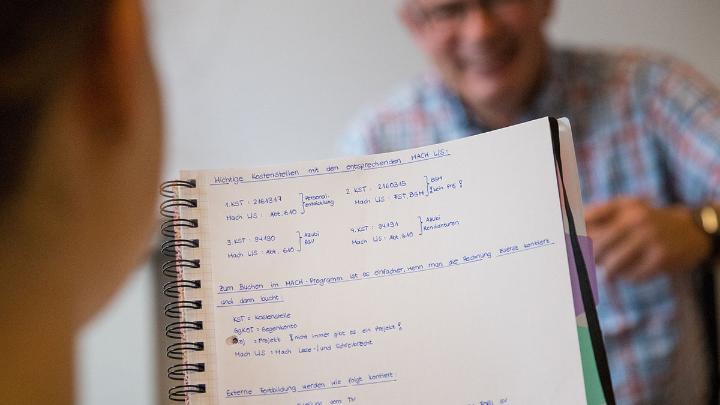 Wichtige Kostenstellen mit den entsprechenden MACH LIS:
1. KST : 2161317 } Personal-entwicklung
Mach LIS : Abt. 610
2. KST : 2160315 } BGM
Mach LIS : FST, BGM
3. KST : 94190 } Azubi
Mach LIS : Abt. 610
4. KST : 94191 } Azubi
Mach LIS : Abt. 610
Zum Buchen im MACH-Programm ist es einfacher, wenn man die Rechnung zuerst kontiert
und dann bucht:
KST = Kostenstelle
GgKOT = Gegenkonto
= Projekt ! nicht immer gibt es ein Projekt !
Mach LIS = Mach Lese- und Schreibrecht
Externe Fortbildung werden wie folgt kontiert: